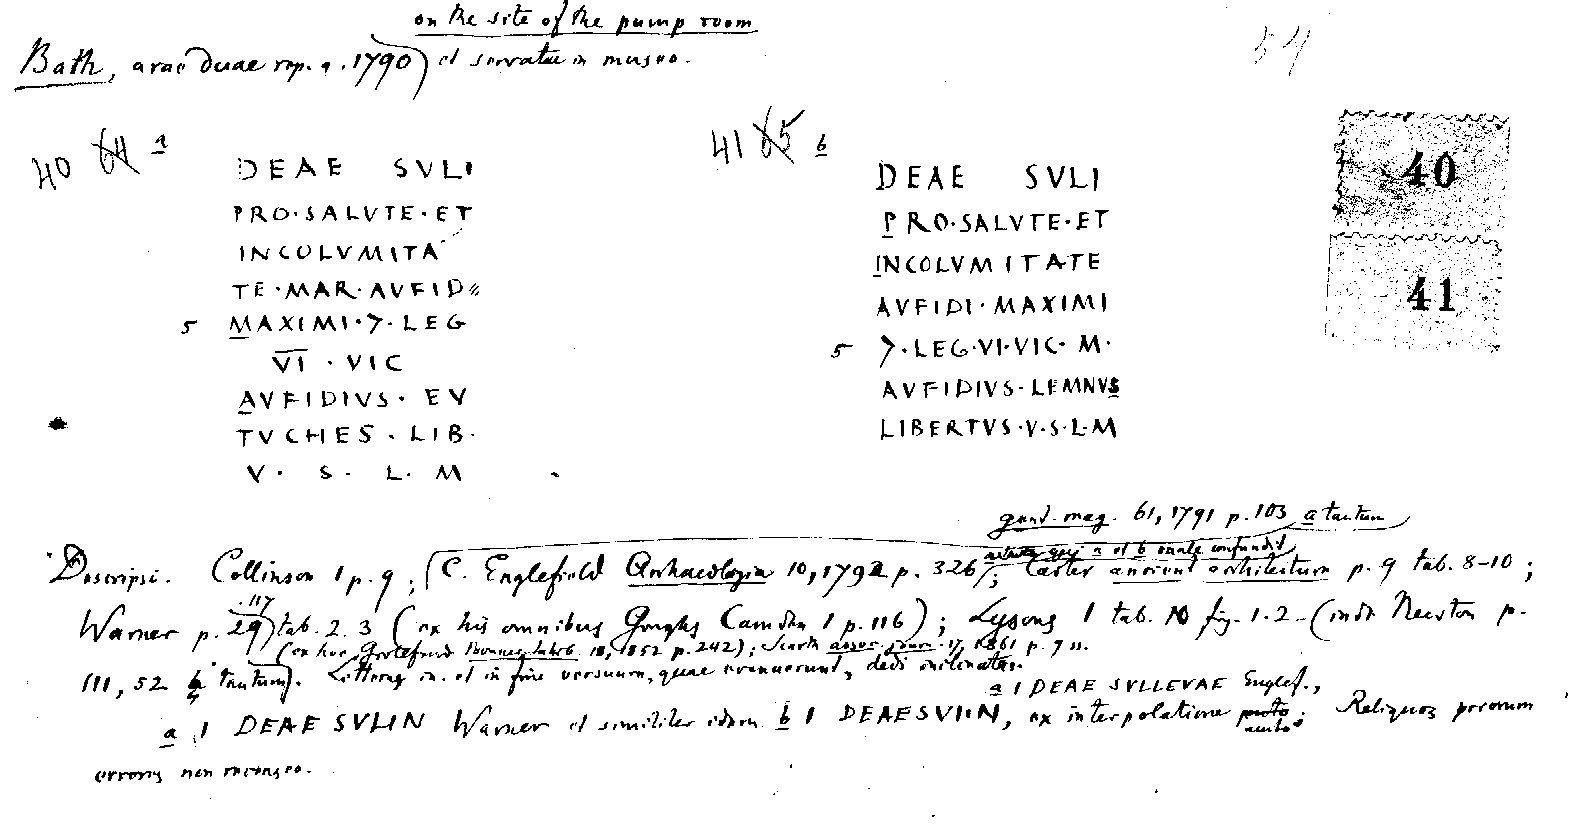 on the site of the pump room
Bath, arae duae rep. a. 1790 et servatae in museo.
54
40 64 a
DEAE SVLI
PRO·SALVTE·ET
INCOLVMITA
TE·MAR·AVFID
5 MAXIMI·7·LEG
VI·VIC
AVFIDIVS·EV
TVCHES·LIB·
V·S·L·M
41 65 b
DEAE SVLI
PRO·SALVTE·ET
INCOLVMITATE
AVFIDI·MAXIMI
5 7·LEG·VI·VIC·M·
AVFIDIVS·LEMNVS
LIBERTVS·V·S·L·M
40
41
gent. mag. 61, 1791 p. 103 a tantum
a et b male confundit
Descripsi. Collinson 1 p. 9; C. Englefield Archaeologia 10, 1792 p. 326; Carter ancient architecture p. 9 tab. 8-10;
117
Warner p. 29 tab. 2. 3 (ex his omnibus Goughs Camden 1 p. 116); Lysons 1 tab. 10 fig. 1. 2 (inde Newton p.
(ex hoc Grotefend Bonner Jahrb. 18, 1852 p. 242); Scarth assoc. journ. 17, 1861 p. 7 11.
111, 52 b tantum). Litteras in. et in fine versuum, quae evanuerunt, dedi inclinatas.
a 1 DEAE SVLLEVAE Englef.,
a 1 DEAE SVLIN Warner et similiter idem b 1 DEAESVIIN, ex interpolatione puto; Reliquos priorum
errores non recenseo.